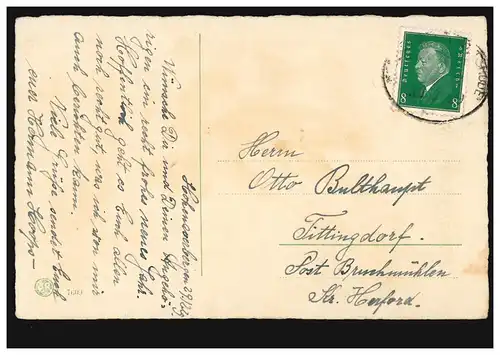 Hohensonne, den 29.
Wünsche Dir und Deinen Angehö-
rigen ein recht frohes neues Jahr.
Hoffentlich geht es Euch allen
noch recht gut, was ich von mir
auch berichten kann.
Viele Grüße sendet Euch
euer Hermann
Deutsches Reich
8 8
Herrn
Otto Bulthaupt
Tittingdorf.
Post Bruchmühlen
Kr. Herford.